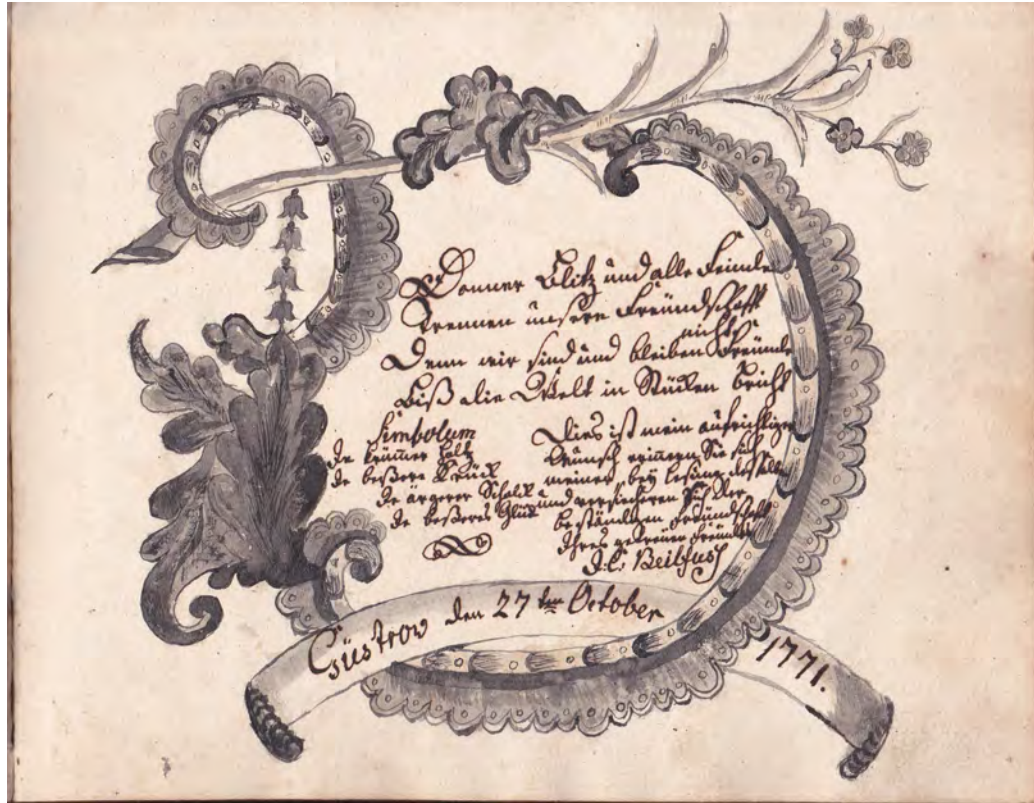 Donner Blitz und alle Feinde
Trennen unsere Freündschafft
nicht
Denn wir sind und bleiben Freünde
Biß die Welt in Stücken bricht
Simbolum
Je krümmer Holtz
Je beßere Krück
Je ärgerer Schalck
Je beßeres Glück
Dies ist mein aufrichtiger
Wunsch erinnern Sie sich
meiner bey Lesung deßelben
und versicheren sich der
beständigen Freündschafft
Ihres getreüen Freündes
J. C. Beilfus
Güstrow den 27 ten October
1771.